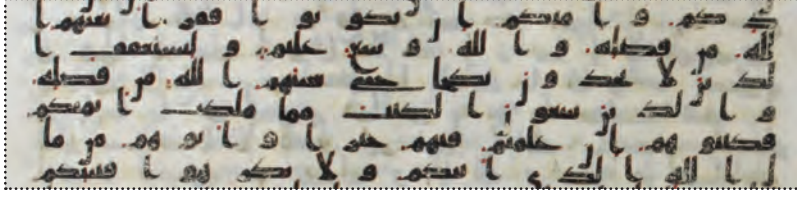 دكم وامئكم ان يكونوا فقرا يغنهم ا
لله من فضله والله وسع عليم وليستعفف ا
لذين لا يجدون نكاحا حتى يغنيهم الله من فضله
والذين يبتغون الكتب مما ملكت ايمنكم
فكتبوهم ان علمتم فيهم خيرا واتوهم من ما
ل الله الذي اتيكم ولا تكرهوا فتيتكم